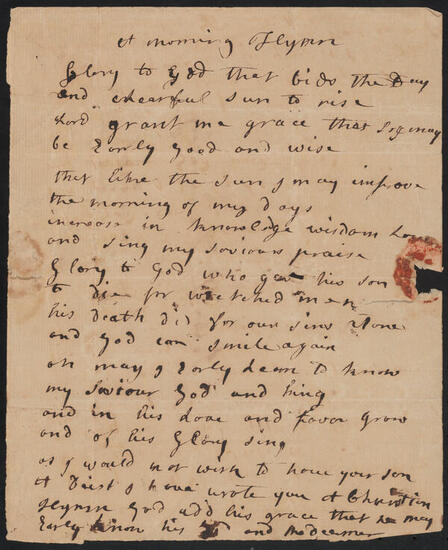 A morning Hymn
Glory to God that bids the Day
and chearful sun to rise
Lord grant me grace that I may
be Early Good and wise
that like the sun I may improve
the morning of my days
increase in knowledge wisdom Love
and sing my saviours praise
Glory to God who gave his son
to die for wretched men
his death did for our sins atone
and God can smile again
oh may I Early learn to know
my Saviour God and king
and in his Love and favor grow
and of his Glory sing
as I would not wish to have your son
A Deist I have wrote you A Christian
Hymn God add his grace that he may
Early know his God and Redeemer